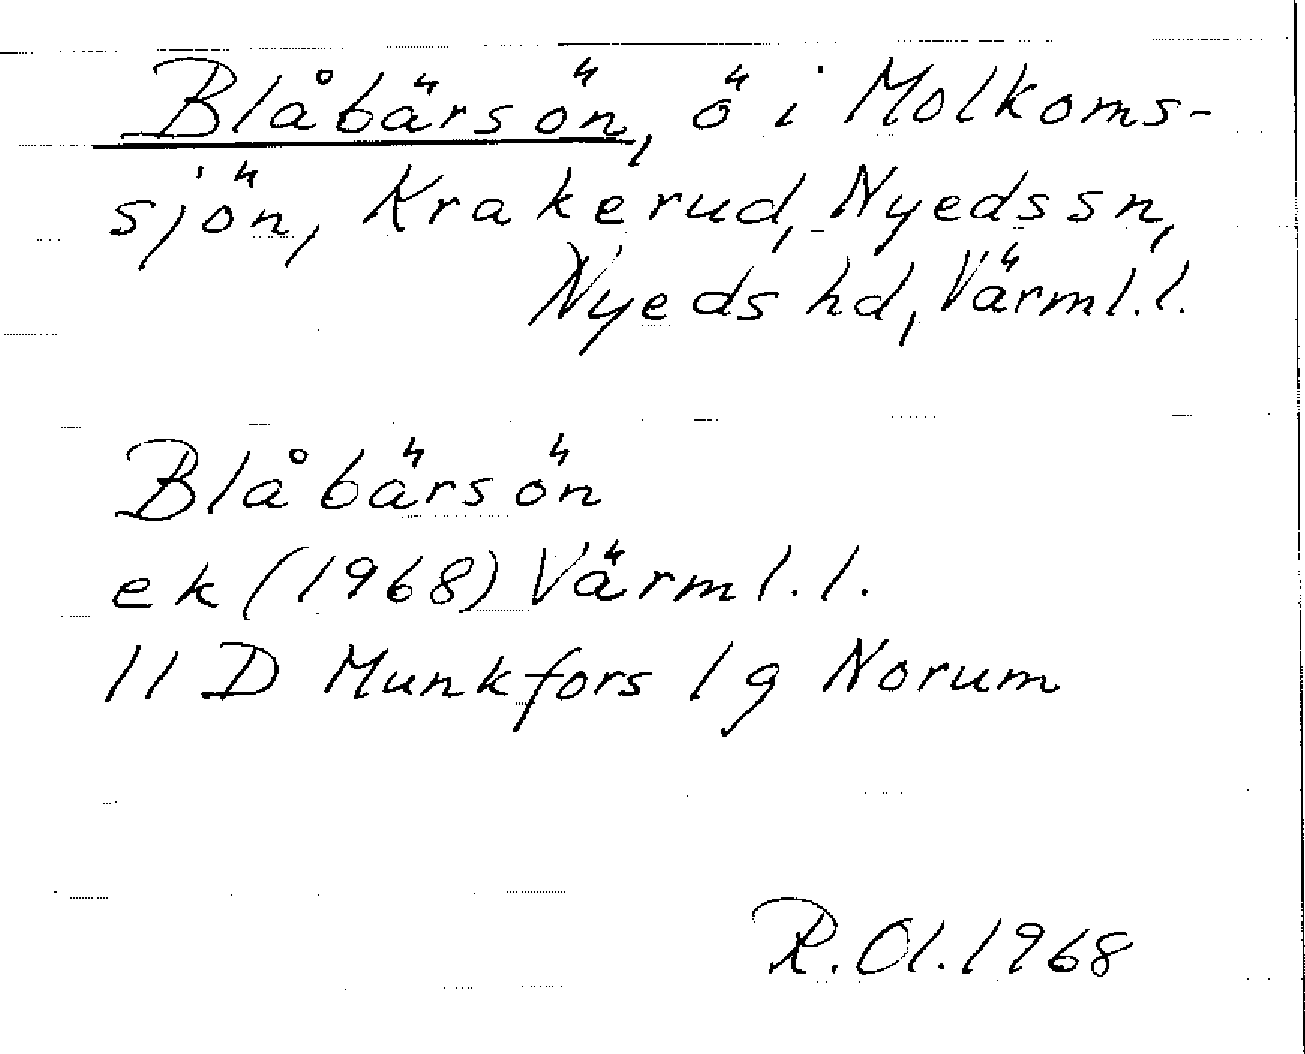 Blåbärsön, ö i Molkoms-
sjön, Krakerud, Nyeds sn,
Nyeds hd, Värml. l.
Blåbärsön
ek (1968) Värml. l.
11 D Munkfors 1 g Norum
R. Ol. 1968